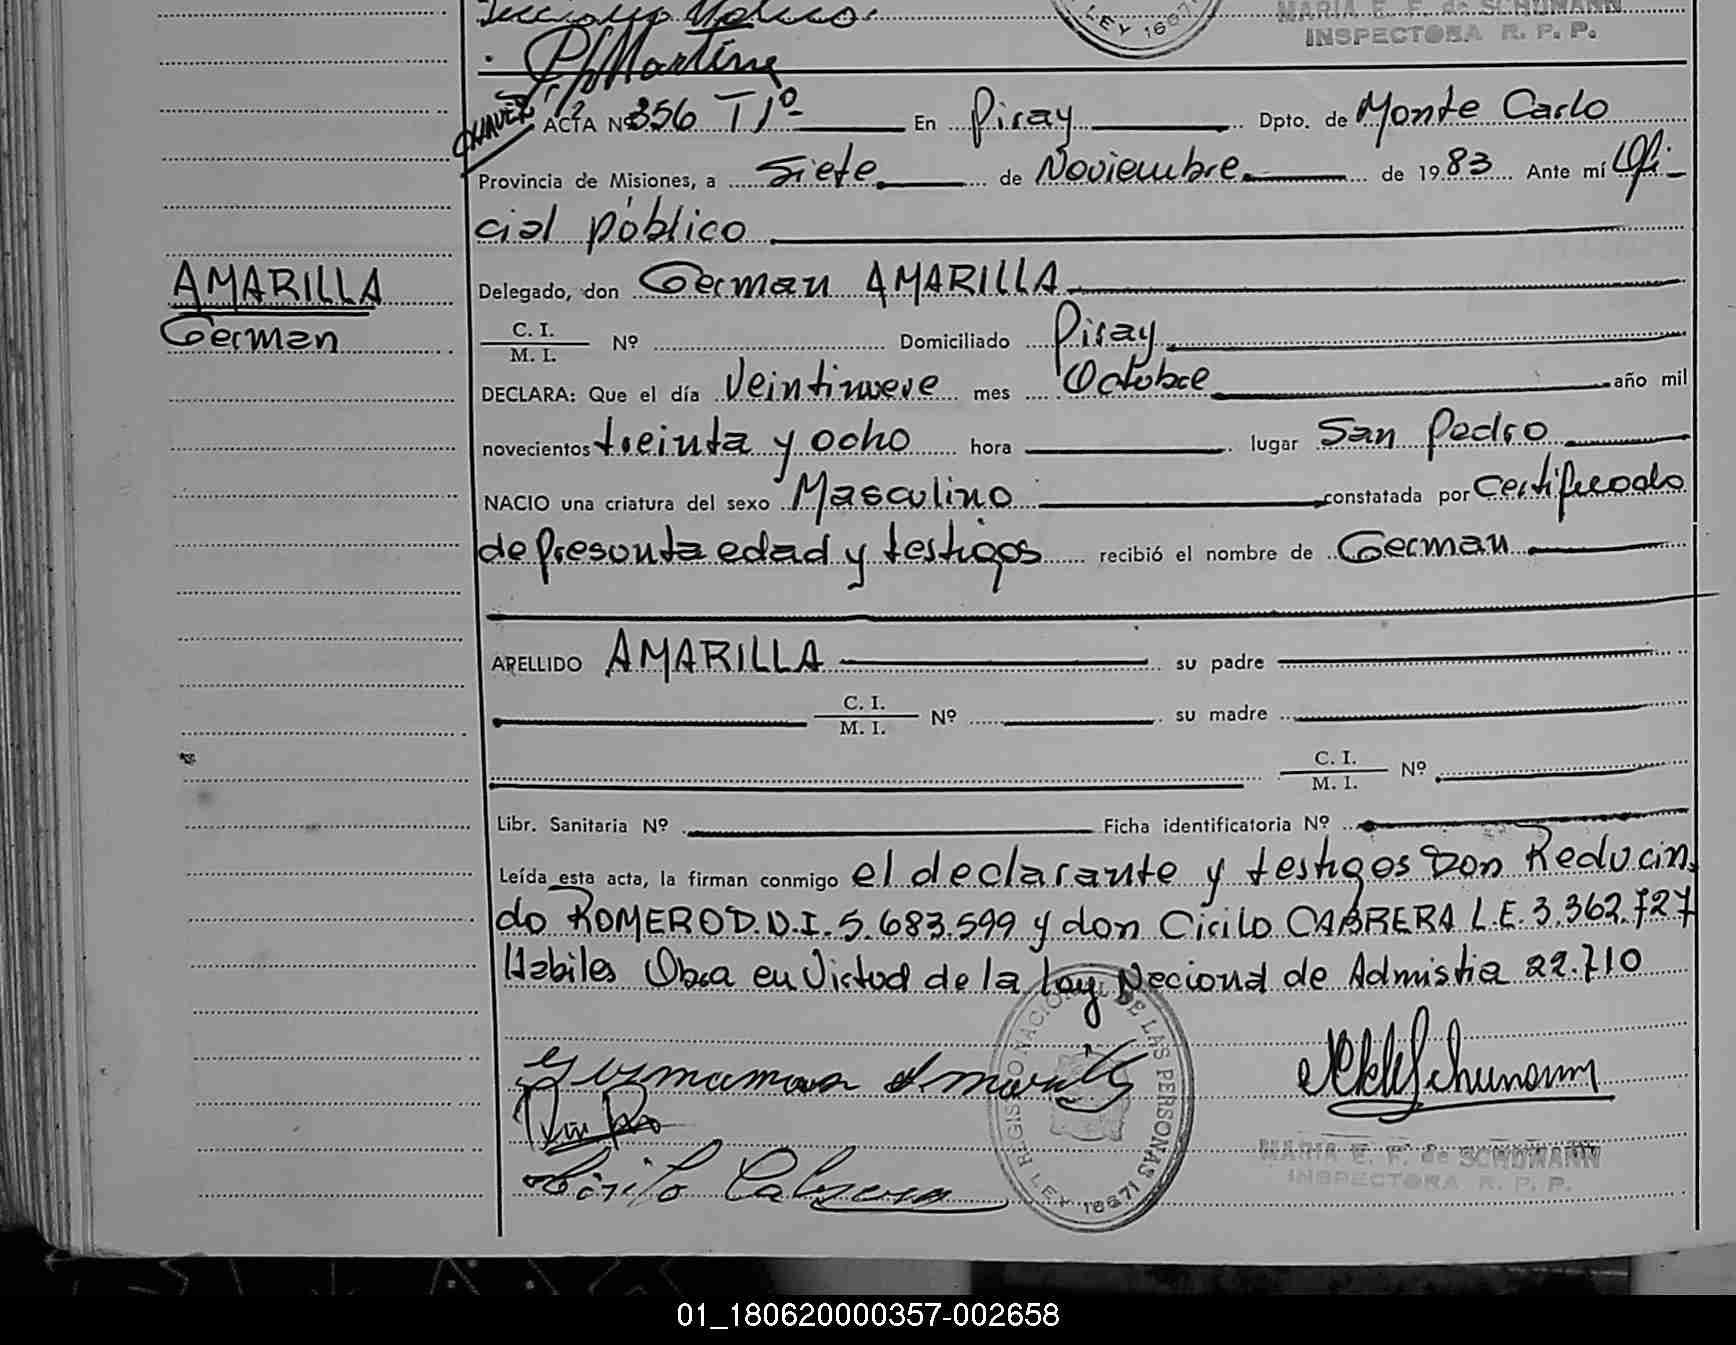 LEY 1667
MARIA E. F. de SCHUMANN
INSPECTORA R. P. P.
ACTA Nº 356 T1º En Piray Dpto. de Monte Carlo
Provincia de Misiones, a Siete de Noviembre de 1983 Ante mí Ofi-
cial público
AMARILLA
German
Delegado, don German AMARILLA
C. I. / M. I. Nº Domiciliado Piray
DECLARA: Que el día Veintinueve mes Octubre año mil
novecientos treinta y ocho hora lugar San Pedro
NACIO una criatura del sexo Masculino constatada por Certificado
de Presunta edad y testigos recibió el nombre de German
APELLIDO AMARILLA su padre
C. I. / M. I. Nº su madre
C. I. / M. I. Nº
Libr. Sanitaria Nº Ficha identificatoria Nº
Leída esta acta, la firman conmigo el declarante y testigos Don Reducin
do ROMERO D.N.I. 5.683.599 y don Cirilo CABRERA L.E. 3.362.727
Habiles Obra en Virtud de la Ley Nacional de Admistia 22.710
REGISTRO NACIONAL DE LAS PERSONAS
LEY 16671
Cirilo Cabrera
MARIA E. F. de SCHUMANN
INSPECTORA R. P. P.
01_180620000357-002658